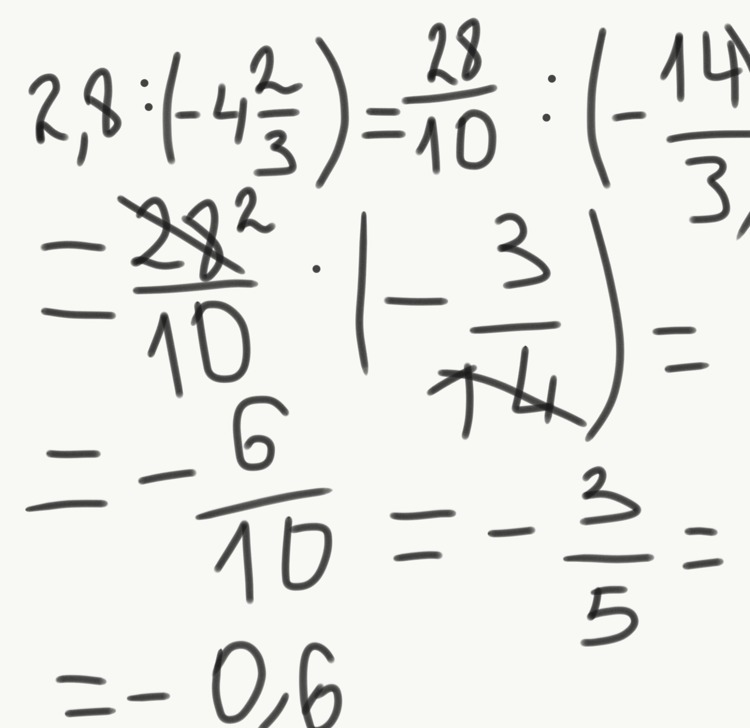 2,8 : (-4 2/3) = 28/10 : (-14/3)
= 28/10 2 · (-3/14) =
= -6/10 = -3/5 =
= -0,6